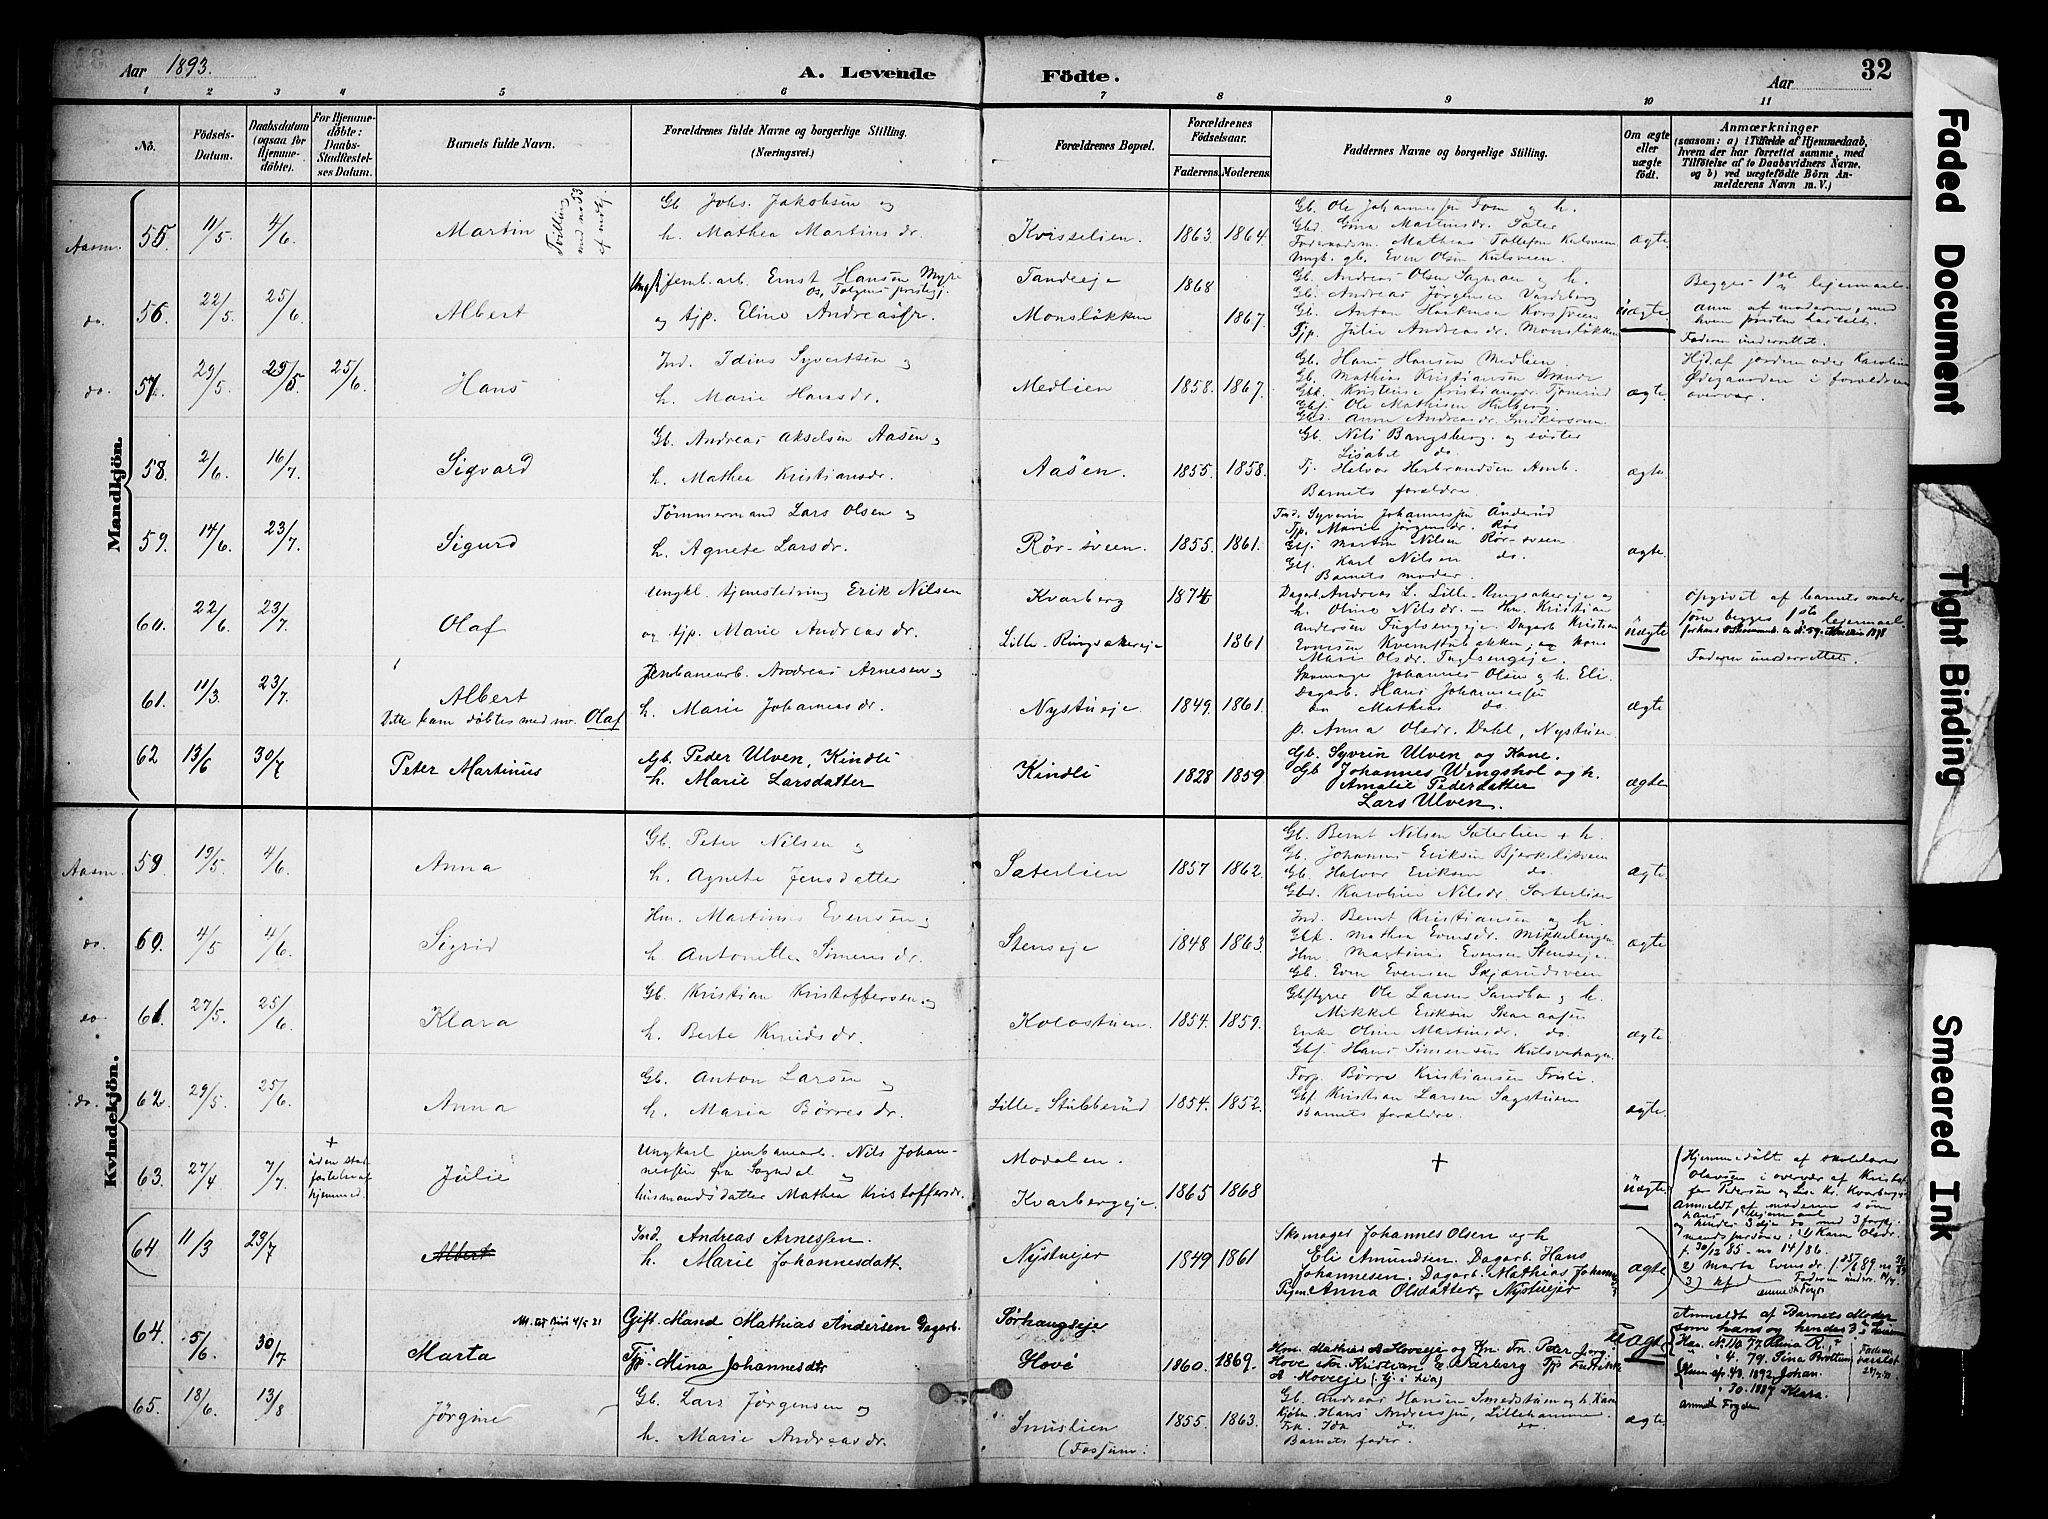 Aar 1893.
A. Levende Födte.
Aar
32
1 2 3 4 5 6 7 8 9 10 11
No.
Födsels-Datum.
Daabsdatum (ogsaa for Hjemmedöbte).
For Hjemmedöbte: Daabs-Stadfæstelses Datum.
Barnets fulde Navn.
Forældrenes fulde Navne og borgerlige Stilling. (Næringsvei.)
Forældrenes Bopæl.
Forældrenes Födselsaar.
Faderens. Moderens.
Faddernes Navne og borgerlige Stilling.
Om ægte eller uægte födt.
Anmærkninger
(saasom: a) i Tilfælde af Hjemmedaab, hvem der har forrettet samme, med Tilföielse af to Daabsvidners Navne. og b) ved uægtefödte Börn Anmelderens Navn m. V.)
Mandkjön.
Aasm. 55. 11/5 4/6. Martin
Tvilling med no 53
Gb. Johs. Jakobsen og
h. Mathea Martins dr.
Kvisselien. 1863. 1864.
Gb. Ole Johannessen Tom og h.
Gbd. Gina Martinsdr. Sater
Mathias Tollefsen Kulsveen
Ungk. gb. Even Olsen Kulsveen.
ægte
do. 56. 22/5. 25/6. Albert
Ungk. Jernb.arb. Ernst Hansen Myre
og tjp. Eline Andreasdr.
Tandeeje 1868
Monsløkken 1867.
Gb. Andreas Olsen og h.
Gb. Andreas Jörgensen Vardeberg
Gb. Anton Haakensen Korsveen
Tjp. Julie Andreasdr. Monsløkken
uægte
Begges 1ste lejermaal.
anm. af moderen, med
hvem presten har talt.
Faderen underrettet.
do. 57. 29/5. 29/5. 25/6. Hans
Ind. Idius Syvertsen og
h. Marie Hansdr.
Medlien 1858. 1867.
Gb. Hans Hansen Medlien
Gb. Mathias Kristiansen
Gbk. Kristense Kristiansdr.
Gbf. Ole Mathisen Hulberg
Gbd. Anne Andreasdr.
ægte.
Hjd. af jordemoder Karoline
Ødegaarden i forældrenes
overvær.
58. 2/6. 16/7. Sigvard
Gb. Andreas Akselsen Aasen og
h. Mathea Kristiansdr.
Aasen. 1855. 1858.
Gb. Nils Bangsberg og søster
Lisabet do.
Tj. Helvor Herbrandsen Amb.
Barnets forældre.
ægte
59. 14/6. 23/7. Sigurd
Tømmermand Lars Olsen og
h. Agnete Larsdr.
Rör-sveen. 1855. 1861.
Ind. Syverin Johannessen Ånderud
Tjp. Marie Jörgensdr. Rör
Gbf. Martin Nilsen Rör-sveen
Gbf. Karl Nilsen do.
Barnets moder.
ægte
60. 22/6. 23/7. Olaf
Ungkl. tjenestedreng Erik Nilsen
og tjp. Marie Andreas dr.
Kvarberg 1874
Lille-Ringsakereje 1861
Dagarb. Andreas L. Lille-Ringsakereje og
h. Oline Nilsdr. – Hm. Kristian
Andersen Fuglsengeje. Dagarb. Kristian
Evensen Kvernstubakken, og kone
Mari Olsdr. Fuglsengeje.
uægte
Opgivet af barnets moder
som begges 1ste lejermaal.
Faderen underrettet.
61. 11/3. 23/7. Albert
Dette barn döbtes med nr. Olaf
Jernbanearb. Andreas Arnesen og
h. Marie Johannesdr.
Nystueje 1849. 1861.
Skomager Johannes Olsen og h. Eli.
Dagarb. Hans Johannessen
Mathias do.
p. Anna Olsdr. Dahl, Nystuen.
ægte
62 13/6 30/7 Peter Martinus
Gb. Peder Ulven, Kindli
h. Marie Larsdatter
Kindli 1828 1859
Gb. Syvrin Ulven og Kone.
Gb Johannes Wengshol og h.
Amalie Pedersdatter
Lars Ulven.
ægte
Kvindekjön.
Aasm. 59. 19/5. 4/6. Anna
Gb. Peter Nilsen og
h. Agnete Jensdatter
Sæterlien 1857 1862.
Gb. Bernt Nilsen Sæterlien + h.
Gb. Johannes Eriksen Bjerkelisveen
Gb. Halvor Eriksen do.
Gbd. Karoline Nilsdr. Sæterlien
ægte.
do. 60. 4/5 4/6. Sigrid
Hm. Martinus Evensen og
h. Antonette Simensdr.
Stenseje 1848 1863.
Ind. Bernt Kristiansen og h.
Gbk. Mathea Evensdr. Mikkelengen
Hm. Martinus Evensen Stenseje.
Gb. Even Evensen Skjærudsveen
ægte
do. 61. 27/5. 25/6. Klara
Gb. Kristian Kristoffersen og
h. Berte Knudsdr.
Kolostuen. 1854. 1859.
Gbstyrer Ole Larsen Sandbo og h.
Mikkel Eriksen Skaraasen
Enke Oline Martinsdr. do.
Gbf. Hans Simensen Kulsvehagen
ægte
do. 62. 29/5. 25/6. Anna
Gb. Anton Larsen og
h. Maria Börresdr.
Lille-Stubberud 1854. 1852.
Torp. Börre Kristiansen Frili
Gbf. Kristian Larsen Sagstuen
Barnets forældre.
ægte
63. 27/4 7/7.
+
uden stadfæstelse af hjemmed.
Julie
Ungkarl jernbanearb. Nils Johannessen fra Sogndal og
husmandsdatter Mathea Kristoffersdr.
Modalen.
Kvarbergeje. 1865 1868
+
uægte
Hjemmedöbt af skolelærer
Olavsen i overvær af Kristoffer Pedersen og Lise Kr. Kvarbergeje
Anmeldt af moderen som
hans 1 lejermaal
og hendes 3dje do. med 3 forskj.
mandspersoner: 1) Karen Olsdr.
f. 30/12 85 - no 14/86.
2) Marta Evensdr. f. 25/6 89 no
3)
(64 11/3 23/7 Albert
Ind. Andreas Arnessen.
h. Marie Johannesdatt.
Nystuejer 1849 1861
Skomager Johannes Olsen og h
Eli Amundsen. Dagarb. Hans
Johannesen. Dagarb. Mathias Johannesen
Pigen Anna Olsdatter, Nystuejer
ægte
64. 5/6. 30/7 Marta
Gift. Mand Mathias Andersen Dagarb.
Tjp. Mina Johannesdtr
Sørhaugseje
Hove 1860. 1869.
Hm. Mathias A Hoveeje og Kn. Fr. Peter Jörg.
Hove Fr. Kristian E Farberg Tjp
A Hoveeje (: G. i Lia)
Uægte
Anmeldt af Barnets Moder
som hans og hendes 3die
Johan.
Klara.
anmeldt Fogden
65. 18/6. 13/8 Jörgine
Gb. Lars Jörgensen og
h. Marie Andreasdr.
Smuslien
(Fossum:
1855. 1863.
Gb. Andreas Hansen Smedstuen og h. Karen
Kjöbm. Hans Andreassen, Lillehammer
Frk. Ida do. do.
Barnets fader.
ægte
Faded Document
Tight Binding
Smeared Ink